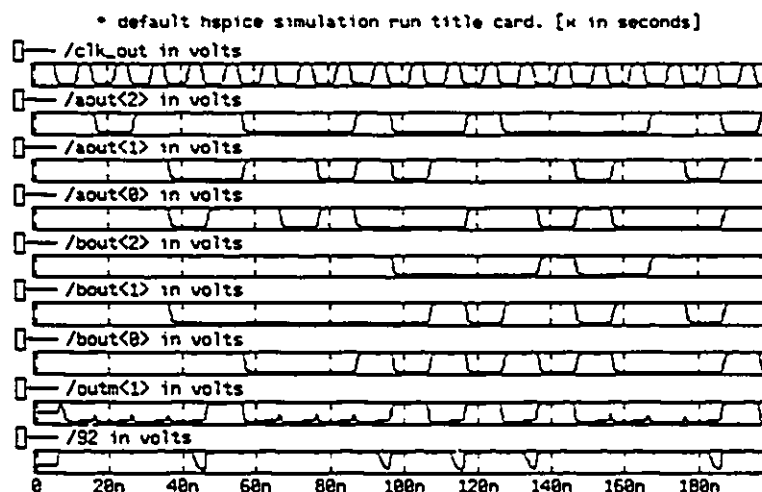 * default hspice simulation run title card. [x in seconds]
/clk_out in volts
/aout<2> in volts
/aout<1> in volts
/aout<0> in volts
/bout<2> in volts
/bout<1> in volts
/bout<0> in volts
/outm<1> in volts
/92 in volts
0 20n 40n 60n 80n 100n 120n 140n 160n 180n